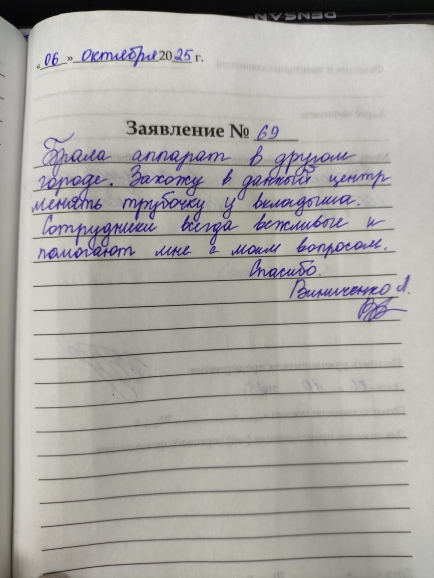 DENSAN
«06» октября 2025 г.
Заявление № 69
Брала аппарат в другом
городе. Захожу в данный центр
менять трубочку у вкладыша.
Сотрудники всегда вежливые и
помогают мне с моим вопросом.
Спасибо.
Виниченко Л.